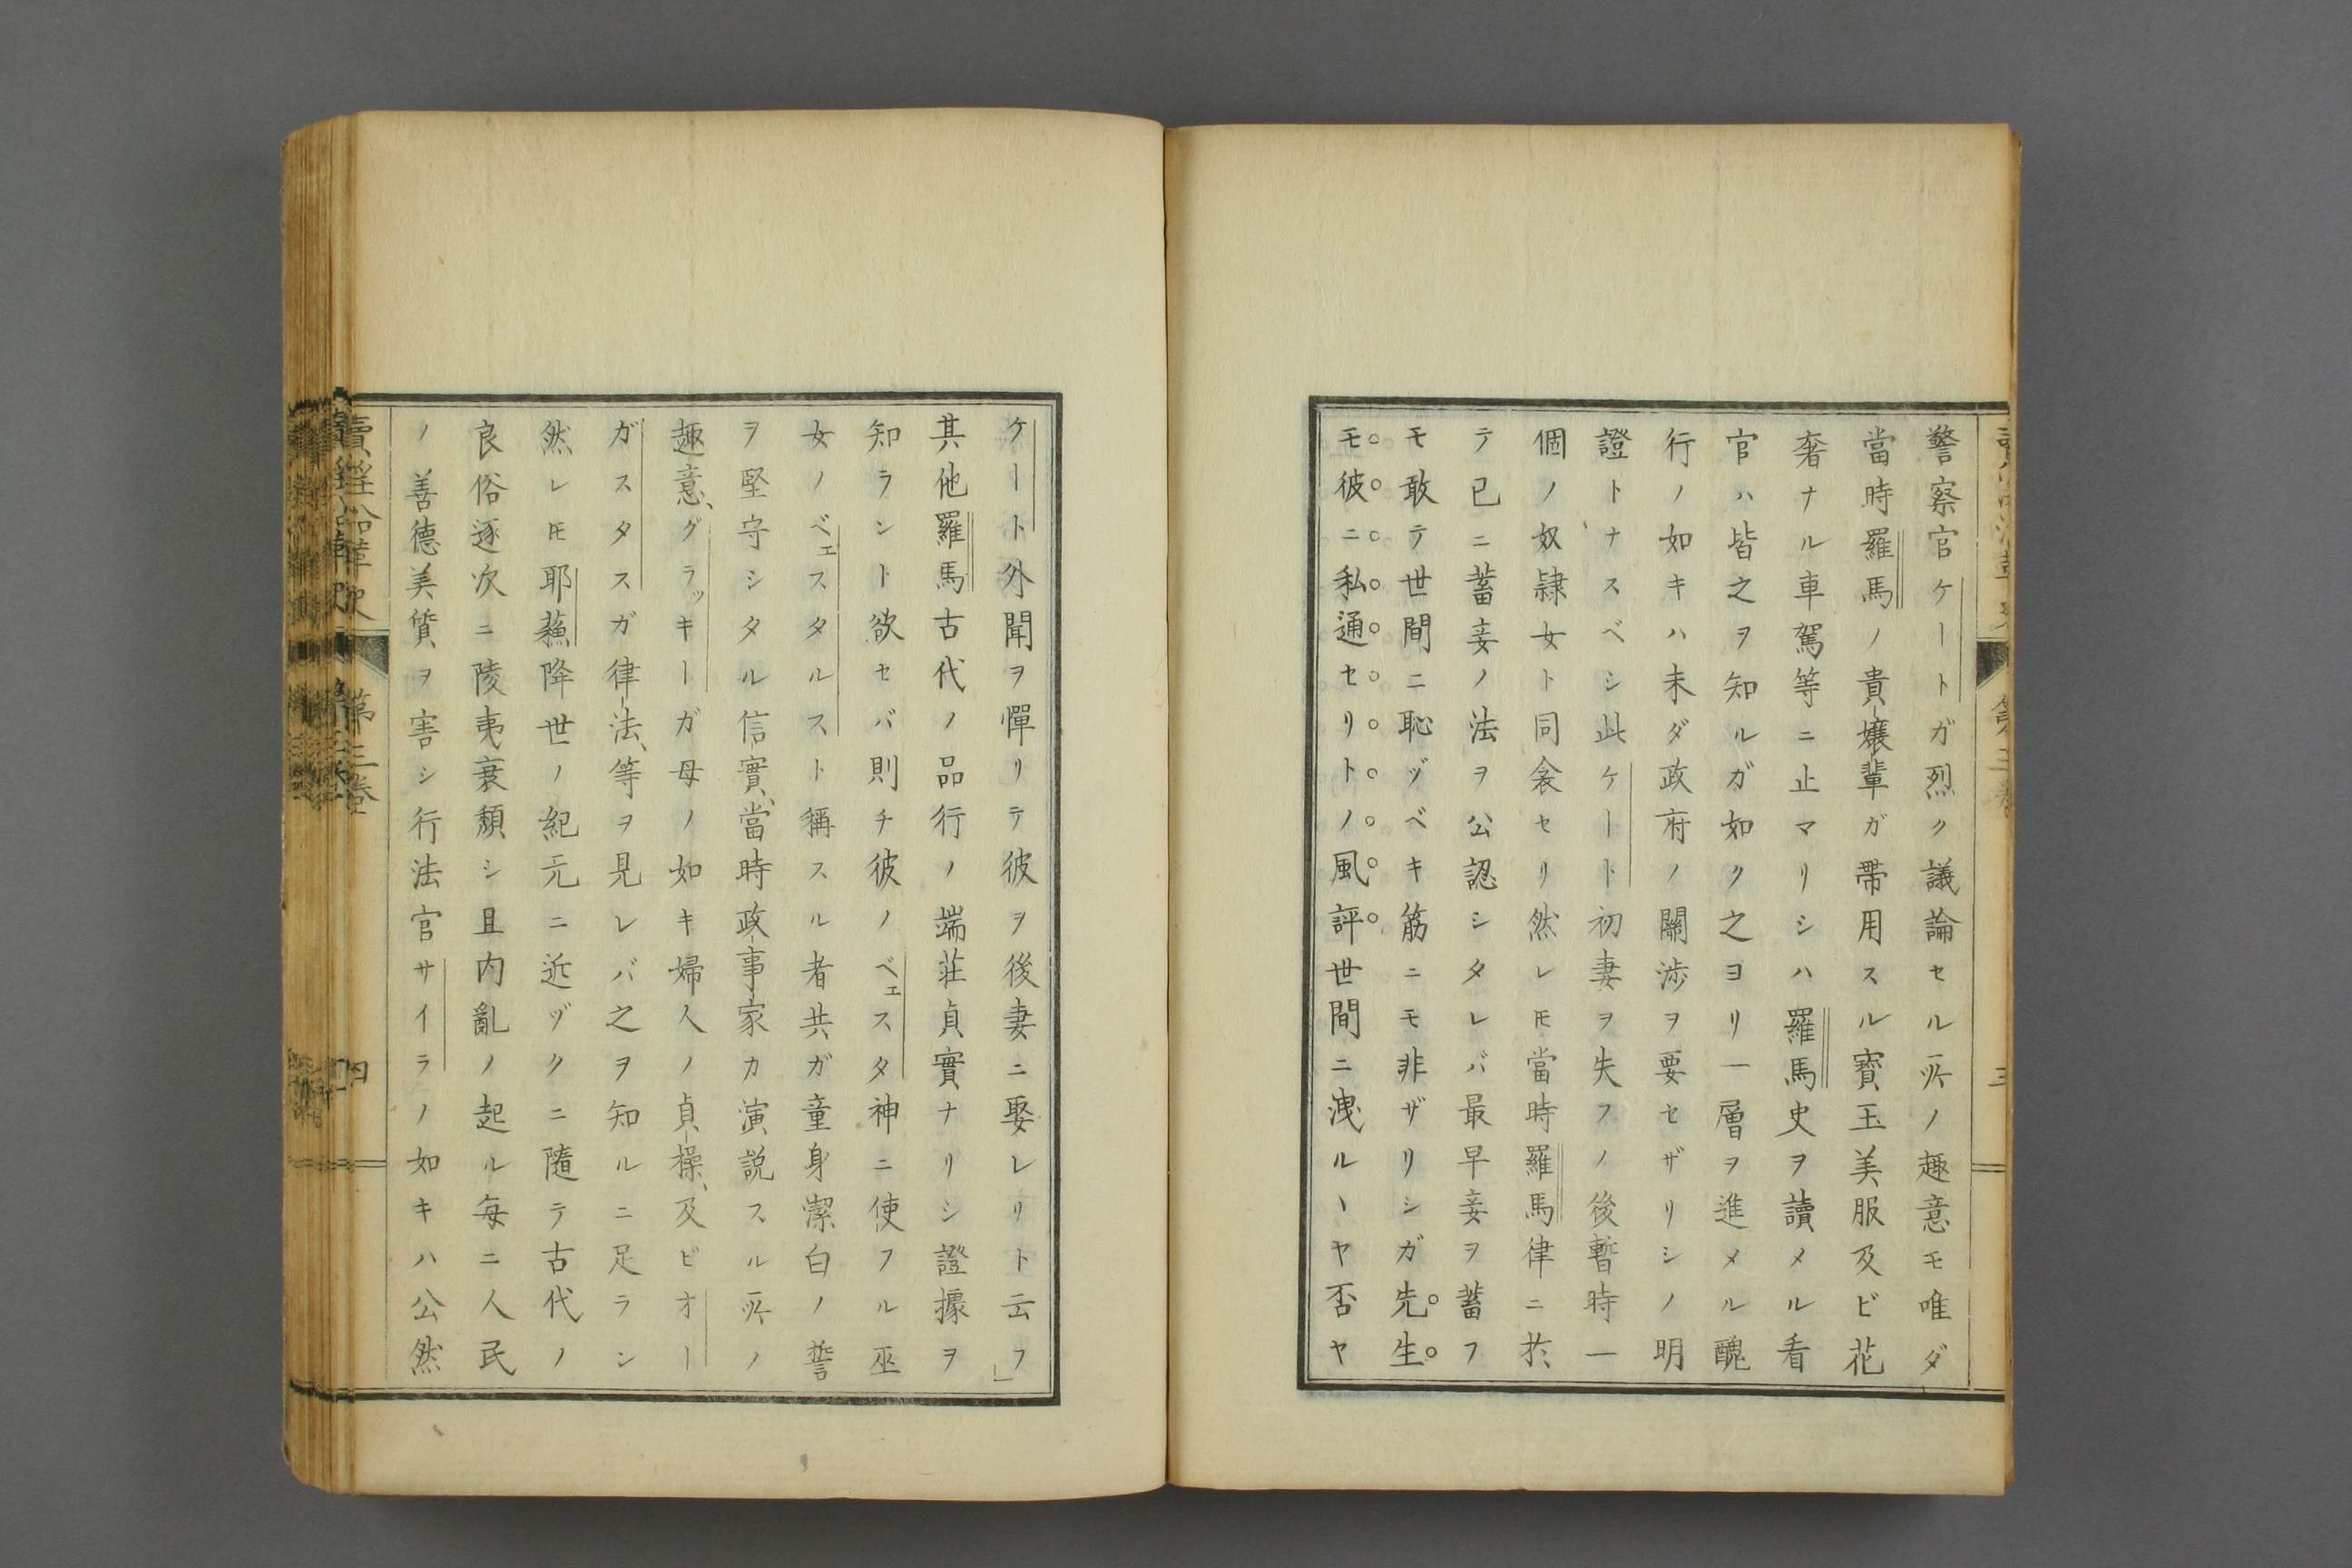 警察官ケートガ烈ク議論セル所ノ趣意モ唯ダ
當時羅馬ノ貴孃輩ガ帶用スル寳玉美服及ビ花
奢ナル車駕等ニ止マリシハ羅馬史ヲ讀メル看
官ハ皆之ヲ知ルガ如ク之ヨリ一層ヲ進メル醜
行ノ如キハ未ダ政府ノ關渉ヲ要セザリシノ明
證トナスベシ此ケート初妻ヲ失フノ後暫時一
個ノ奴隷女ト同衾セリ然レ𪜈當時羅馬律ニ於
テ已ニ蓄妾ノ法ヲ公認シタレバ最早妾ヲ蓄フ
モ敢テ世間ニ恥ヅベキ筋ニモ非ザリシガ先生
モ彼ニ私通セリトノ風評世間ニ洩ルヽヤ否ヤ
ケート外聞ヲ憚リテ彼ヲ後妻ニ娶レリト云フ」
其他羅馬古代ノ品行ノ端莊貞實ナリシ證據ヲ
知ラント欲セバ則チ彼ノベェスタ神ニ使フル巫
女ノベェスタルスト稱スル者共ガ童身潔白ノ誓
ヲ堅守シタル信實、當時政事家カ演説スル所ノ
趣意、グラッキーガ母ノ如キ婦人ノ貞操、及ビオー
ガスタスガ律法、等ヲ見レバ之ヲ知ルニ足ラン
然レ𪜈耶蘓降世ノ紀元ニ近ヅクニ隨テ古代ノ
良俗逐次ニ陵夷衰頽シ且内亂ノ起ル毎ニ人民
ノ善德美質ヲ害シ行法官サイラノ如キハ公然
第三卷
四